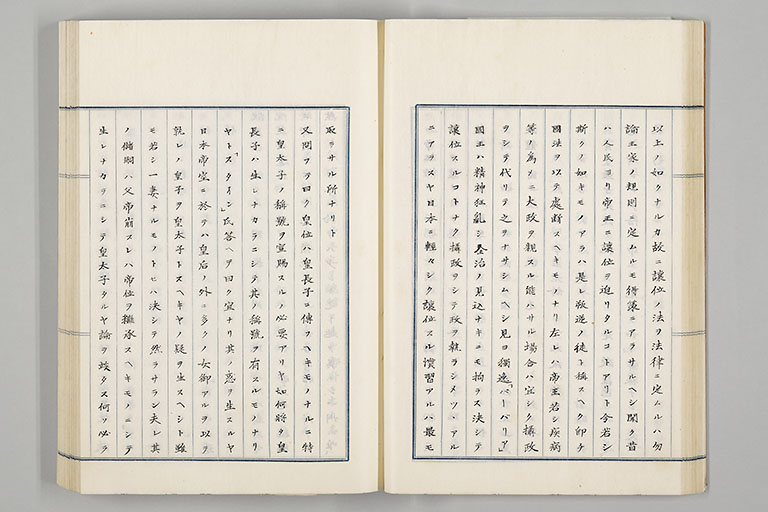 以上ノ如クナルカ故ニ讓位ノ法ヲ法律ニ定ムルハ勿
論王家ノ規則ニ定ムルモ得策ニアラサルヘシ聞ク昔
ハ人民ヨリ帝王ニ讓位ヲ迫リタルコトアリト今若シ
斯クノ如キモノアラハ是レ叛逆ノ徒ト稱スヘク卽チ
國法ヲ以テ處斷スヘキモノナリ左レハ帝王若シ疾病
等ノ爲メニ大政ヲ親スル能ハサル場合ハ宜シク攝政
ヲシテ代リテ之ヲナサシムヘシ見ヨ獨逸「バーバリア」
國王ハ精神狂亂シ全治ノ見込ナキニモ拘ラス決シテ
讓位スルコトナク攝政ヲシテ政ヲ執ラシメツヽアル
ニアラスヤ日本ニ輕々シク讓位スル慣習アルハ最モ
取ラサル所ナリト
又問ヲテ曰ク皇位ハ皇長子ニ傳ヲヘキモノナルニ特
ニ皇太子ノ稱號ヲ宣賜スルノ必要アリヤ如何將タ皇
長子ハ生レナカラニシテ其ノ稱號ヲ有スルモノナリ
ヤト「スタイン」氏答ヘテ曰ク宜ナリ其ノ惑ヲ生スルヤ
日本帝室ニ於テハ皇后ノ外ニ多クノ女御アルヲ以テ
孰レノ皇子ヲ皇太子トスヘキヤ疑ヲ生スヘシト雖
モ若シ一妻ナルモノトセハ決シテ然ラサラン夫レ其
ノ儲嗣ハ父帝崩スレハ帝位ヲ繼承スヘキモノニシテ
生レナカラニシテ皇太子タルヤ論ヲ竢タス何ソ必ラ